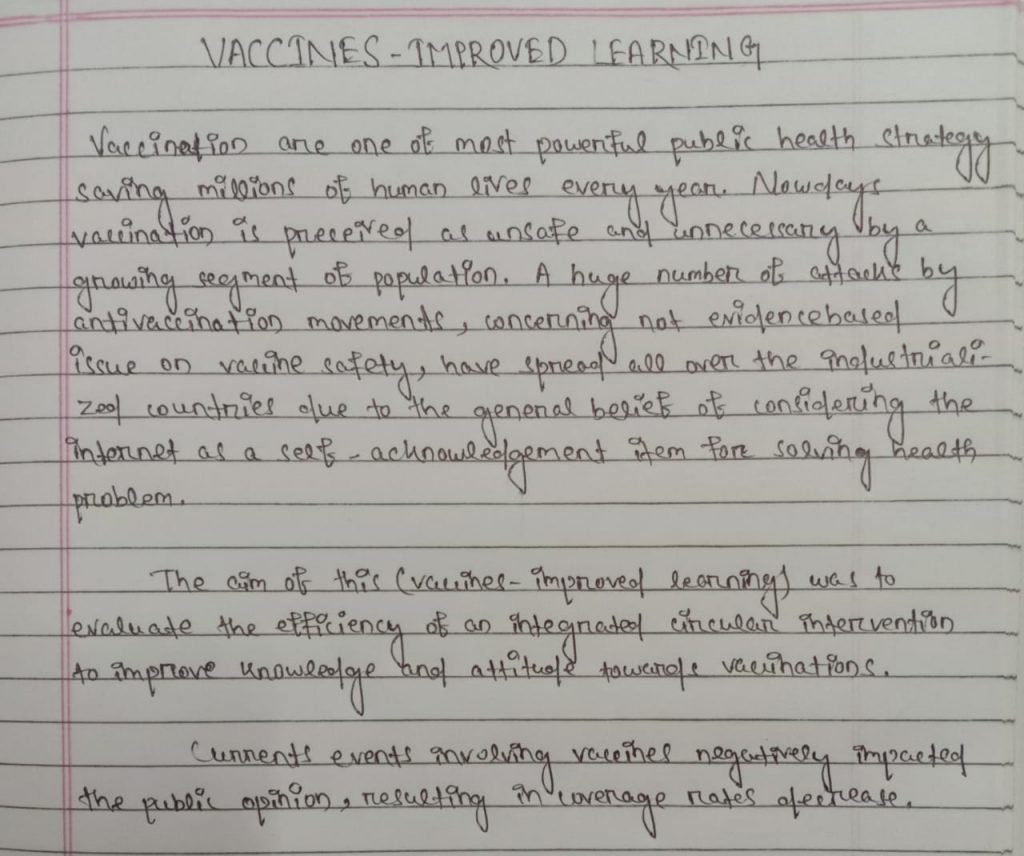 VACCINES - IMPROVED LEARNING
Vaccination are one of most powerful public health strategy
saving millions of human lives every year. Nowdays
vaccination is preceived as unsafe and unnecessary by a
growing seegment of population. A huge number of attacks by
antivaccination movements, concerning not evidencebased
issue on vaccine safety, have spread all over the industriali-
zed countries due to the general belief of considering the
internet as a self - acknowledgement item for solving health
problem.
The aim of this (vaccines - improved learning) was to
evaluate the efficiency of an integrated circular intervention
to improve knowledge and attitude towards vaccinations.
Currents events involving vaccines negatively impacted
the public opinion, resulting in coverage rates decrease.